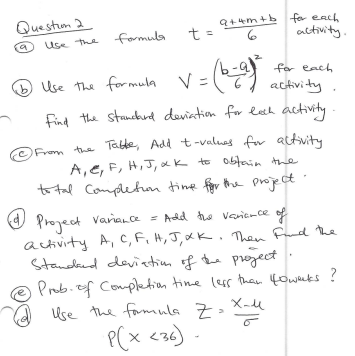 Question 2
(a) Use the formula t = a+4m+b / 6 for each activity.
(b) Use the formula V = (b-a / 6)² for each activity.
Find the standard deviation for each activity.
(c) From the Table, Add t-values for activity
A, C, F, H, J, & K to obtain the
total Completion time for the project.
(d) Project variance = Add the variance of
activity A, C, F, H, J, & K. Then find the
Standard deviation of the project.
(e) Prob. of Completion time less than 40 weeks?
(d) Use the formula Z = X-μ / σ
P(X <36).